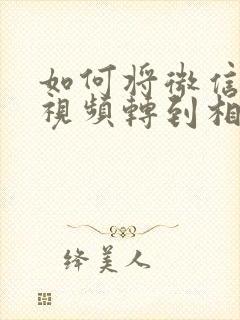 如何将微信
視頻轉到相
绛美人